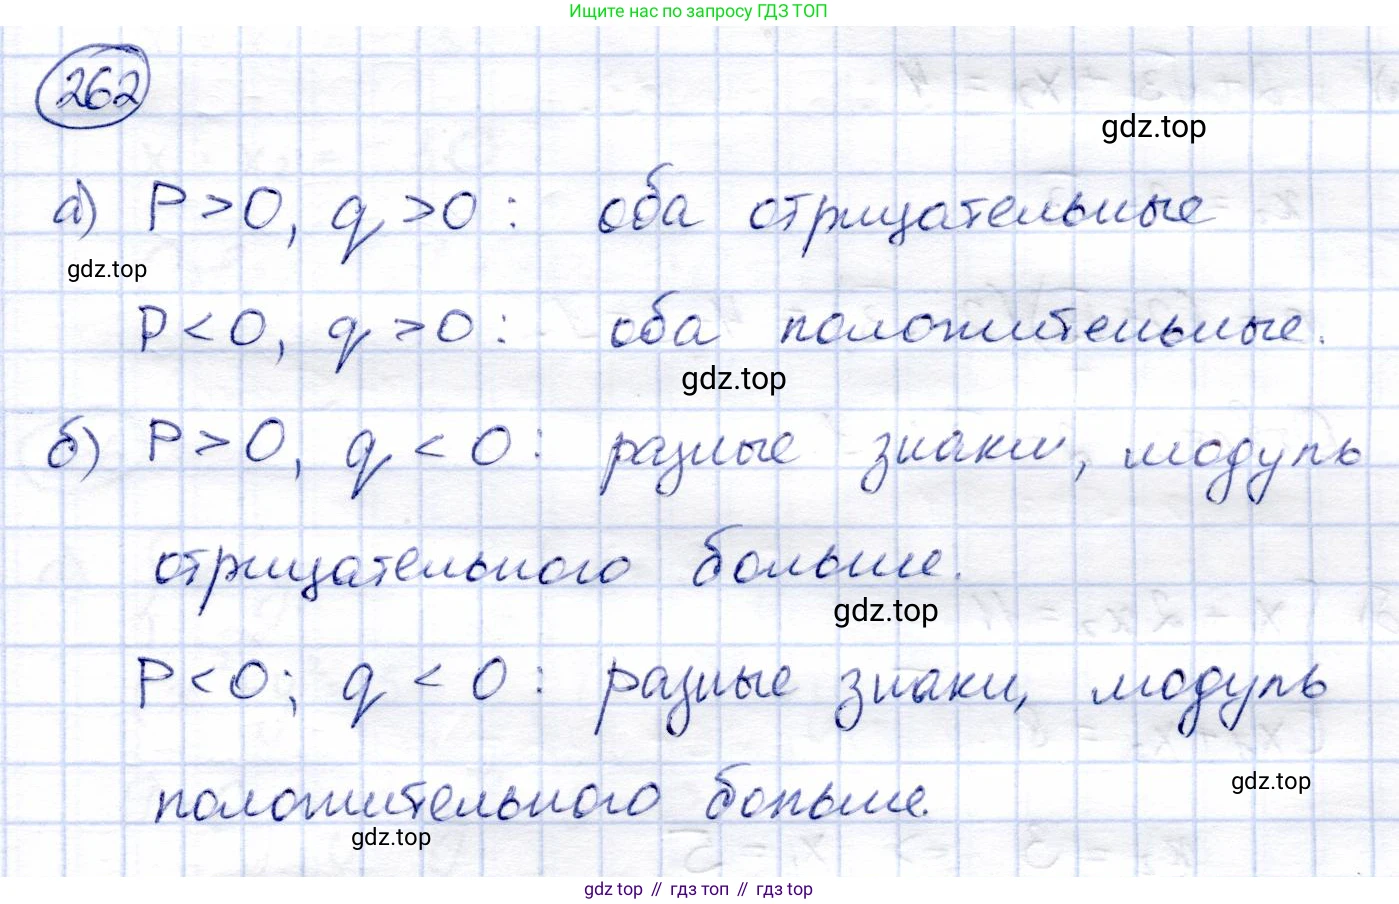 Ищите нас по запросу ГДЗ ТОП
262
gdz.top
а) P > 0, q > 0 : оба отрицательные
gdz.top
P < 0, q > 0 : оба положительные.
gdz.top
б) P > 0, q < 0 : разные знаки, модуль
отрицательного больше.
gdz.top
P < 0; q < 0 : разные знаки, модуль
gdz.top
положительного больше.
gdz.top
gdz top // гдз топ // гдз top